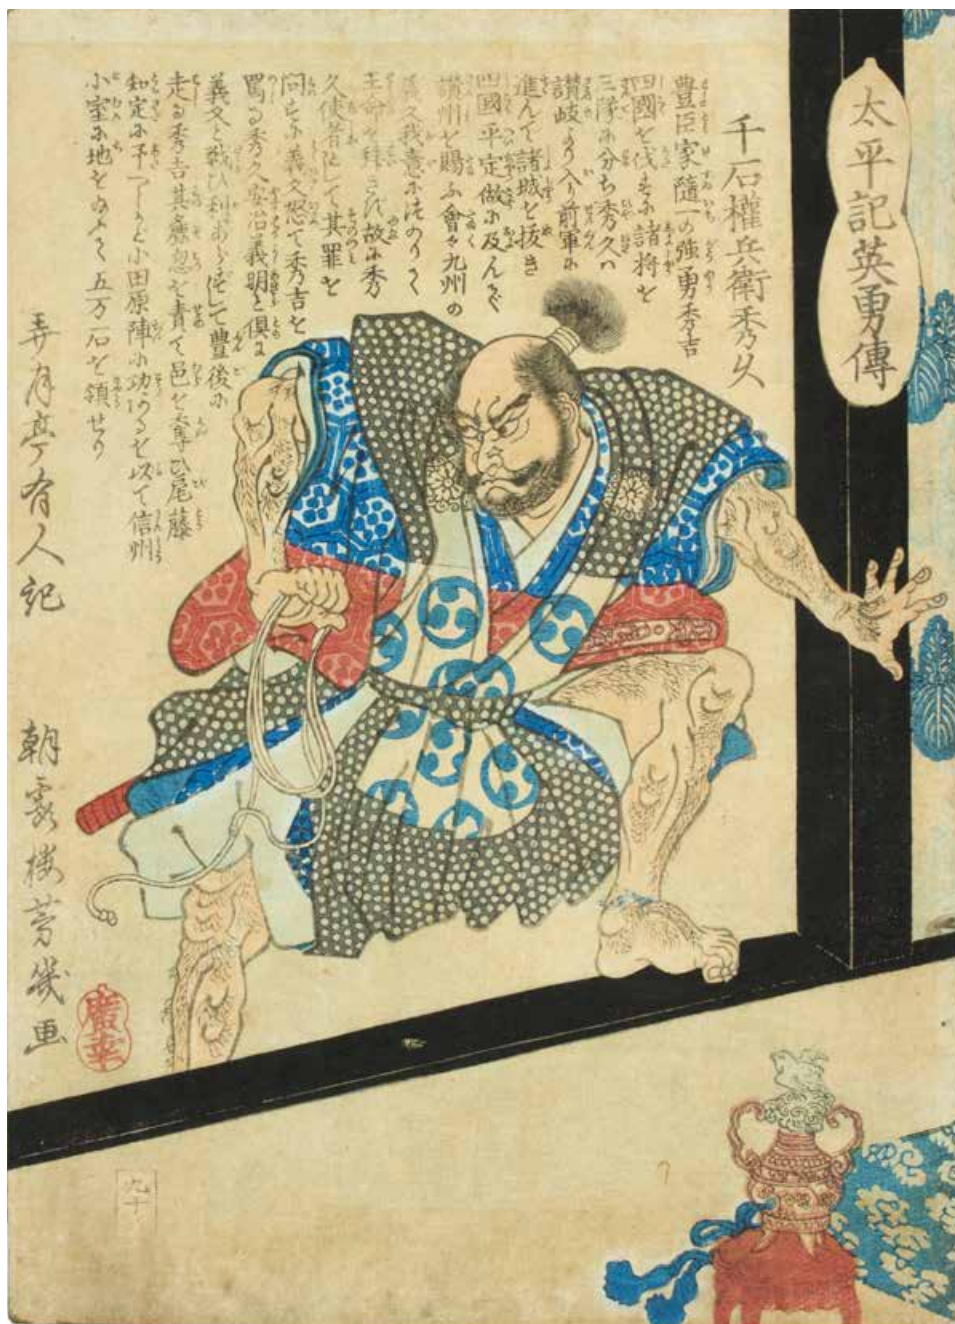 太平記英勇傳
千石權兵衛秀久
豊臣家隨一の強勇秀吉
四國を伐すに諸将を
三隊に分ち秀久ハ
讃岐より入り前軍に
進んで諸城を抜き
四國平定做に及んぐ
讃州を賜ふ會々九州の
久我意にほのりく
主命を 故に秀
久使者 して其罪を
問 に義久怒て秀吉を
罵る秀久安治義明と倶に
義久と戦ひ利あらずして豊後に
走る秀吉其麁忽を責て邑を奪ひ尾藤
知定に下 小田原陣に功 を以て信州
小室に地を 五万石を領せり
弄月亭有人記
朝霞楼芳幾画
廣幸
九十